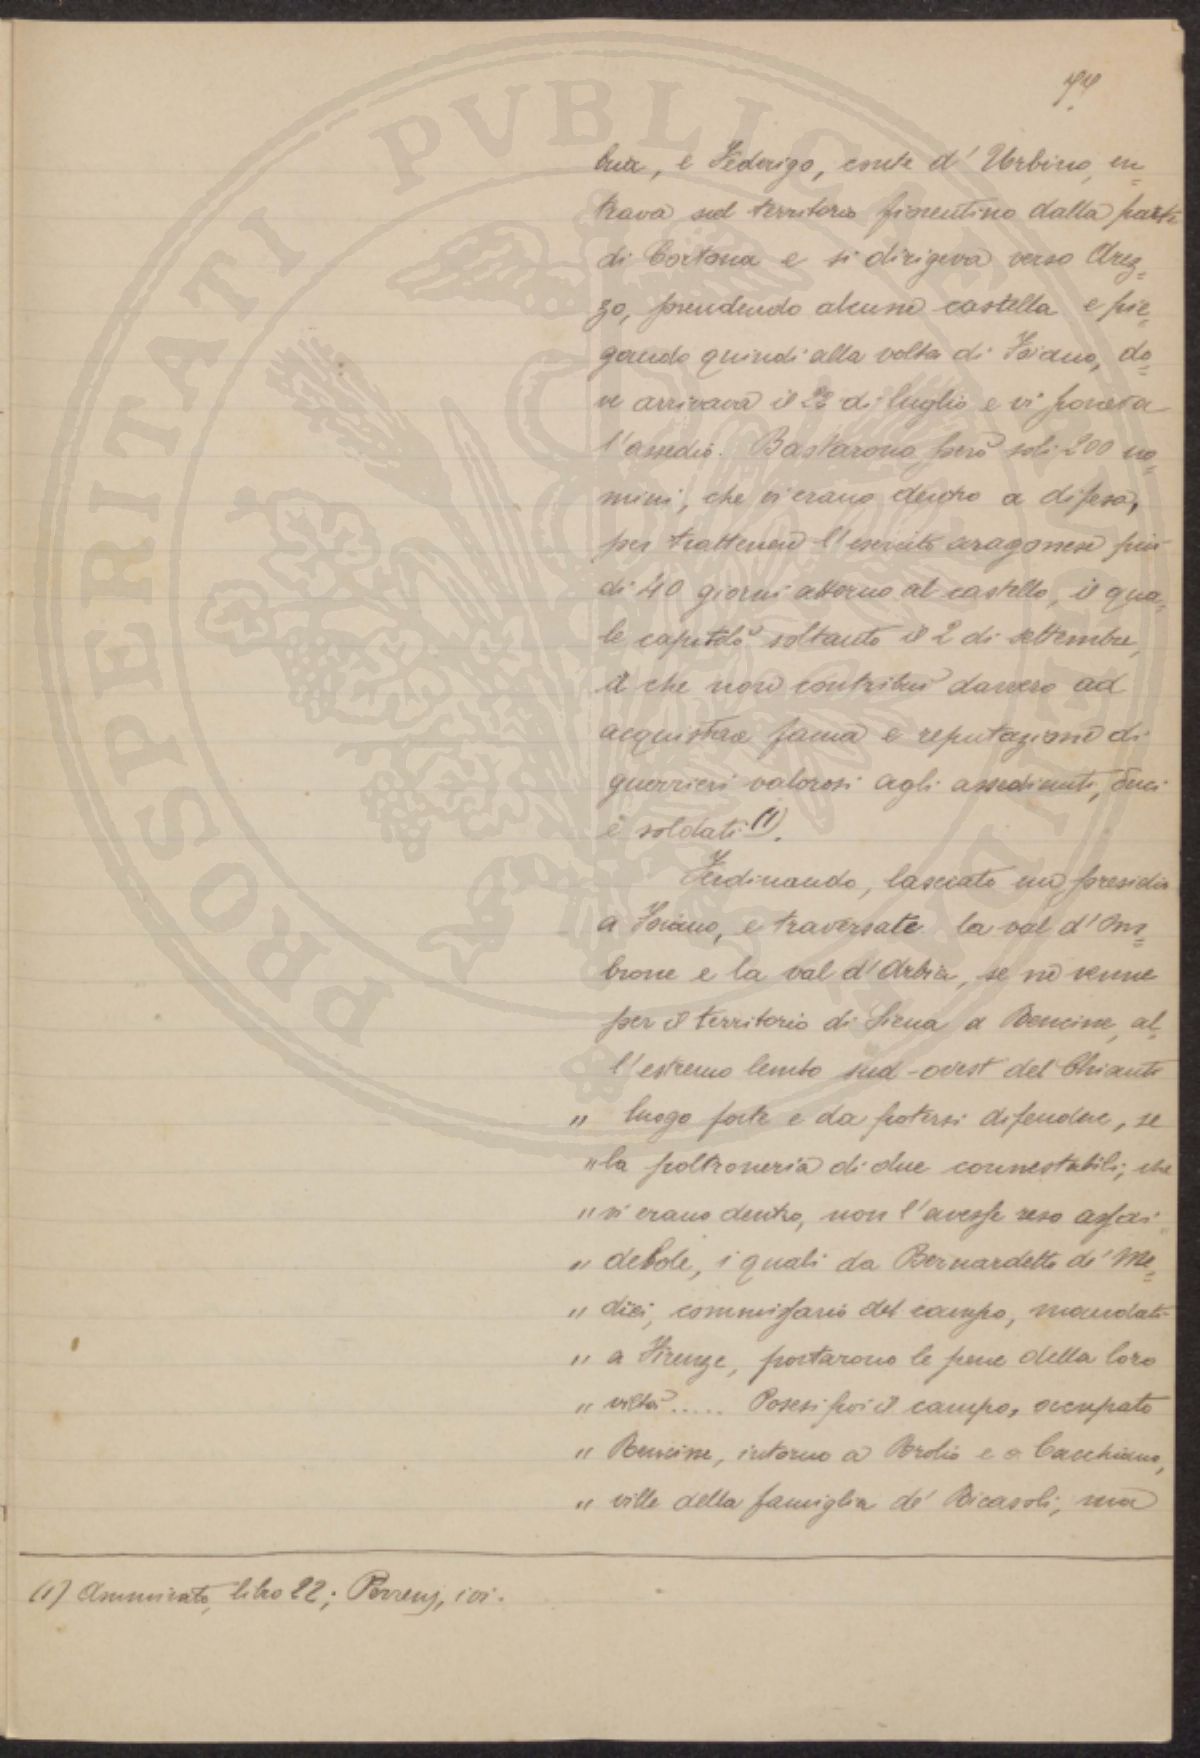 bria, e Federigo, conte d' Urbino, en=
trava sul territorio fiorentino dalla parte
di Cortona e si dirigeva verso Arez=
zo, prendendo alcune castella e pie=
gando quindi alla volta di Foiano, do=
ve arrivava il 22 di luglio e vi poneva
l'assedio. Bastarono però soli 200 uo=
mini, che vi erano dentro a difesa,
per trattenere l'esercito aragonese più
di 40 giorni attorno al castello, il qua=
le capitolò soltanto il 2 di settembre,
il che non contribuì davvero ad
acquistare fama e reputazione di
guerrieri valorosi agli assedianti, duci
e soldati (1).
Ferdinando, lasciato un presidio
a Foiano, e traversate la val d'Om=
brone e la val d'Arbia, se ne venne
per il territorio di Siena a Rencine, al=
l'estremo lembo sud-ovest del Chianti
" luogo forte e da potersi difendere, se
" la poltroneria di due connestabili, che
" vi erano dentro, non l'avesse reso assai
" debole, i quali da Bernardetto de' Me=
" dici, commissario del campo, mandati
" a Firenze, portarono le pene della loro
" viltà..... Posesi poi il campo, occupato
" Rencine, intorno a Brolio e a Cacchiano,
" ville della famiglia de' Ricasoli, ma
(1) Ammirato, libro 22; Perrens, ivi.
PROSPERITATI PVBLICAE